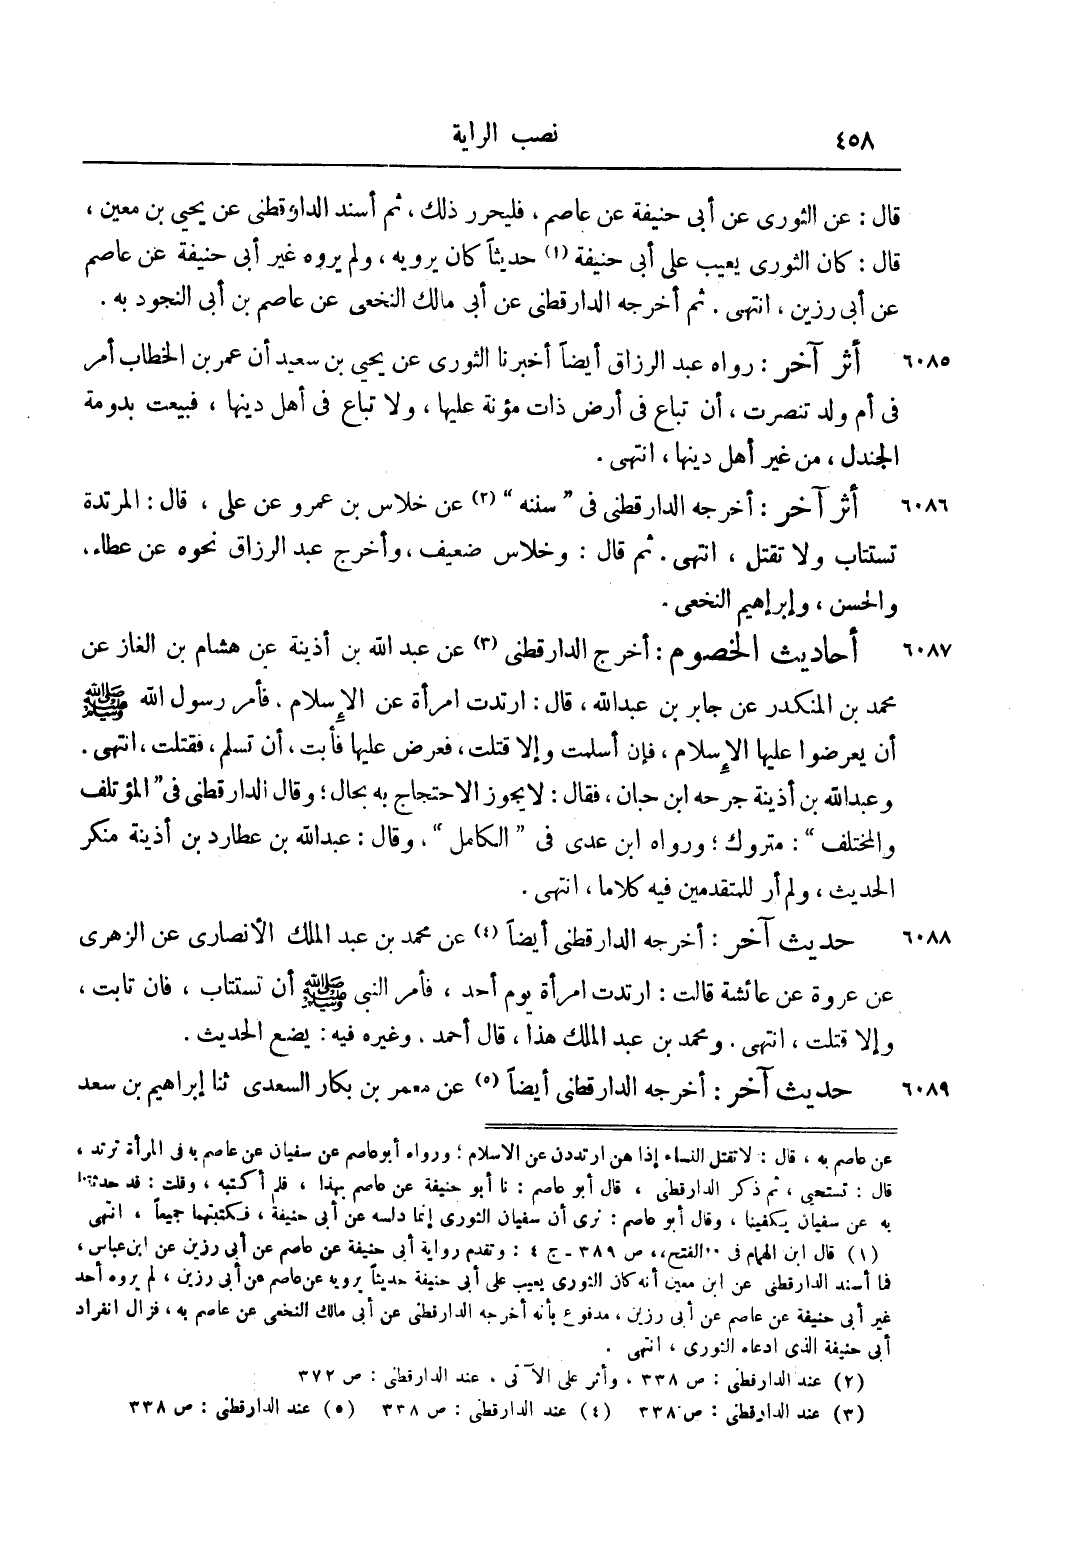 ٤٥٨ نصب الراية
قال : عن الثورى عن أبى حنيفة عن عاصم ، فليحرر ذلك ، ثم أسند الدارقطنى عن يحيى بن معين ،
قال : كان الثورى يعيب على أبى حنيفة (١) حديثاً كان يرويه ، ولم يروه غير أبى حنيفة عن عاصم
عن أبى رزين ، انتهى . ثم أخرجه الدارقطنى عن أبى مالك النخعى عن عاصم بن أبى النجود به .
٦٠٨٥ أثر آخر : رواه عبد الرزاق أيضاً أخبرنا الثورى عن يحيى بن سعيد أن عمر بن الخطاب أمر
فى أم ولد تنصرت ، أن تباع فى أرض ذات مؤنة عليها ، ولا تباع فى أهل دينها ، فبيعت بدومة
الجندل ، من غير أهل دينها ، انتهى .
٦٠٨٦ أثر آخر : أخرجه الدارقطنى فى " سننه " (٢) عن خلاس بن عمرو عن على ، قال : المرتدة
تستتاب ولا تقتل ، انتهى . ثم قال : وخلاس ضعيف ، وأخرج عبد الرزاق نحوه عن عطاء ،
والحسن ، وإبراهيم النخعى .
٦٠٨٧ أحاديث الخصوم : أخرج الدارقطنى (٣) عن عبد الله بن أذينة عن هشام بن الغاز عن
محمد بن المنكدر عن جابر بن عبدالله ، قال : ارتدت امرأة عن الإسلام . فأمر رسول الله ﷺ
أن يعرضوا عليها الإسلام ، فإن أسلمت وإلا قتلت ، فعرض عليها فأبت ، أن تسلم ، فقتلت ، انتهى .
وعبدالله بن أذينة جرحه ابن حبان ، فقال : لا يجوز الاحتجاج به بحال ؛ وقال الدارقطنى فى " المؤتلف
والمختلف " : متروك ؛ ورواه ابن عدى فى " الكامل " ، وقال : عبدالله بن عطارد بن أذينة منكر
الحديث ، ولم أر للمتقدمين فيه كلاما ، انتهى .
٦٠٨٨ حديث آخر : أخرجه الدارقطنى أيضاً (٤) عن محمد بن عبد الملك الأنصارى عن الزهرى
عن عروة عن عائشة قالت : ارتدت امرأة يوم أحد ، فأمر النبى ﷺ أن تستتاب ، فان تابت ،
وإلا قتلت ، انتهى . ومحمد بن عبد الملك هذا ، قال أحمد . وغيره فيه : يضع الحديث .
٦٠٨٩ حديث آخر : أخرجه الدارقطنى أيضاً (٥) عن معمر بن بكار السعدى ثنا إبراهيم بن سعد
عن عاصم به ، قال : لا تقتل النساء إذا هن ارتددن عن الاسلام ؛ ورواه أبو عاصم عن سفيان عن عاصم به فى المرأة ترتد ،
قال : تستحيى ، ثم ذكر الدارقطنى ، قال أبو عاصم : نا أبو حنيفة عن عاصم بهذا ، فلم أكتبه ، وقلت : قد حدثنا
به عن سفيان يكفينا ، وقال أبو عاصم : نرى أن سفيان الثورى إنما دلسه عن أبى حنيفة ، فكتبتهما جميعاً ، انتهى
(١) قال ابن الهمام فى "الفتح،، ص ٣٨٩ - ج ٤ : وتقدم رواية أبى حنيفة عن عاصم عن أبى رزين عن ابن عباس ،
فما أسند الدارقطنى عن ابن معين أنه كان الثورى يعيب على أبى حنيفة حديثاً يرويه عن عاصم عن أبى رزين ، لم يروه أحد
غير أبى حنيفة عن عاصم عن أبى رزين ، مدفوع بأنه أخرجه الدارقطنى عن أبى مالك النخعى عن عاصم به ، فزال انفراد
أبى حنيفة الذى ادعاه الثورى ، انتهى .
(٢) عند الدارقطنى : ص ٣٣٨ ، وأثر على الآتى . عند الدارقطنى : ص ٣٧٢
(٣) عند الدارقطنى : ص ٣٣٨ (٤) عند الدارقطنى : ص ٣٣٨ (٥) عند الدارقطنى : ص ٣٣٨